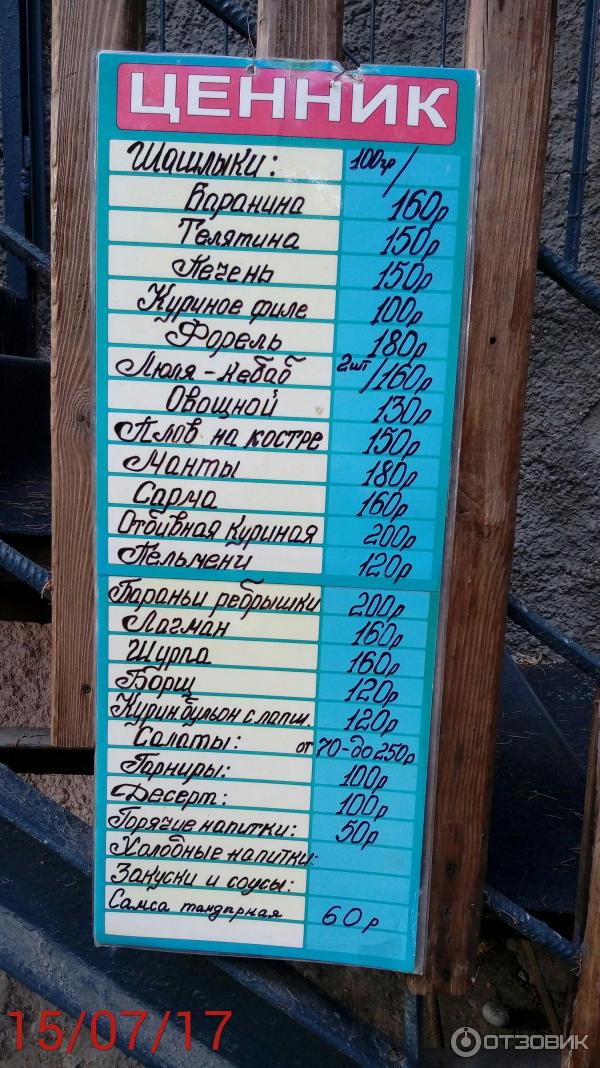 ЦЕННИК
Шашлыки: 100гр/
Баранина 160р
Телятина 150р
Печень 150р
Куриное филе 100р
Форель 180р
Люля-кебаб 2шт/160р
Овощной 130р
Плов на костре 150р
Манты 180р
Сарма 160р
Отбивная куриная 200р
Пельмени 120р
Бараньи ребрышки 200р
Лагман 160р
Шурпа 160р
Борщ 120р
Курин.бульон с лапш. 120р
Салаты: от 70-до 250р
Гарниры: 100р
Десерт: 100р
Горячие напитки: 50р
Холодные напитки:
Закуски и соусы:
Самса тандырная 60р
15/07/17
ОТЗОВИК